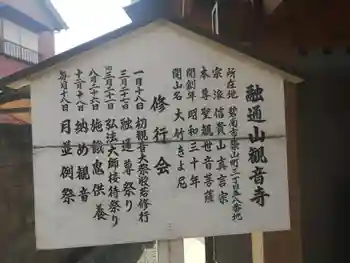 融通山観音寺
所在地 碧南市築山町三丁目八番地
宗派 信貴山真言宗
本尊 聖観世音菩薩
開創年 昭和三十年
開山名 大竹きよ尼
修行会
一月十八日 初観音大祭般若修行
三月二十一日 融通尊祭り
四月二十一日 弘法大師接待祭り
八月二十六日 施餓鬼供養
十二月十八日 納め観音
毎月十八日 月並例祭